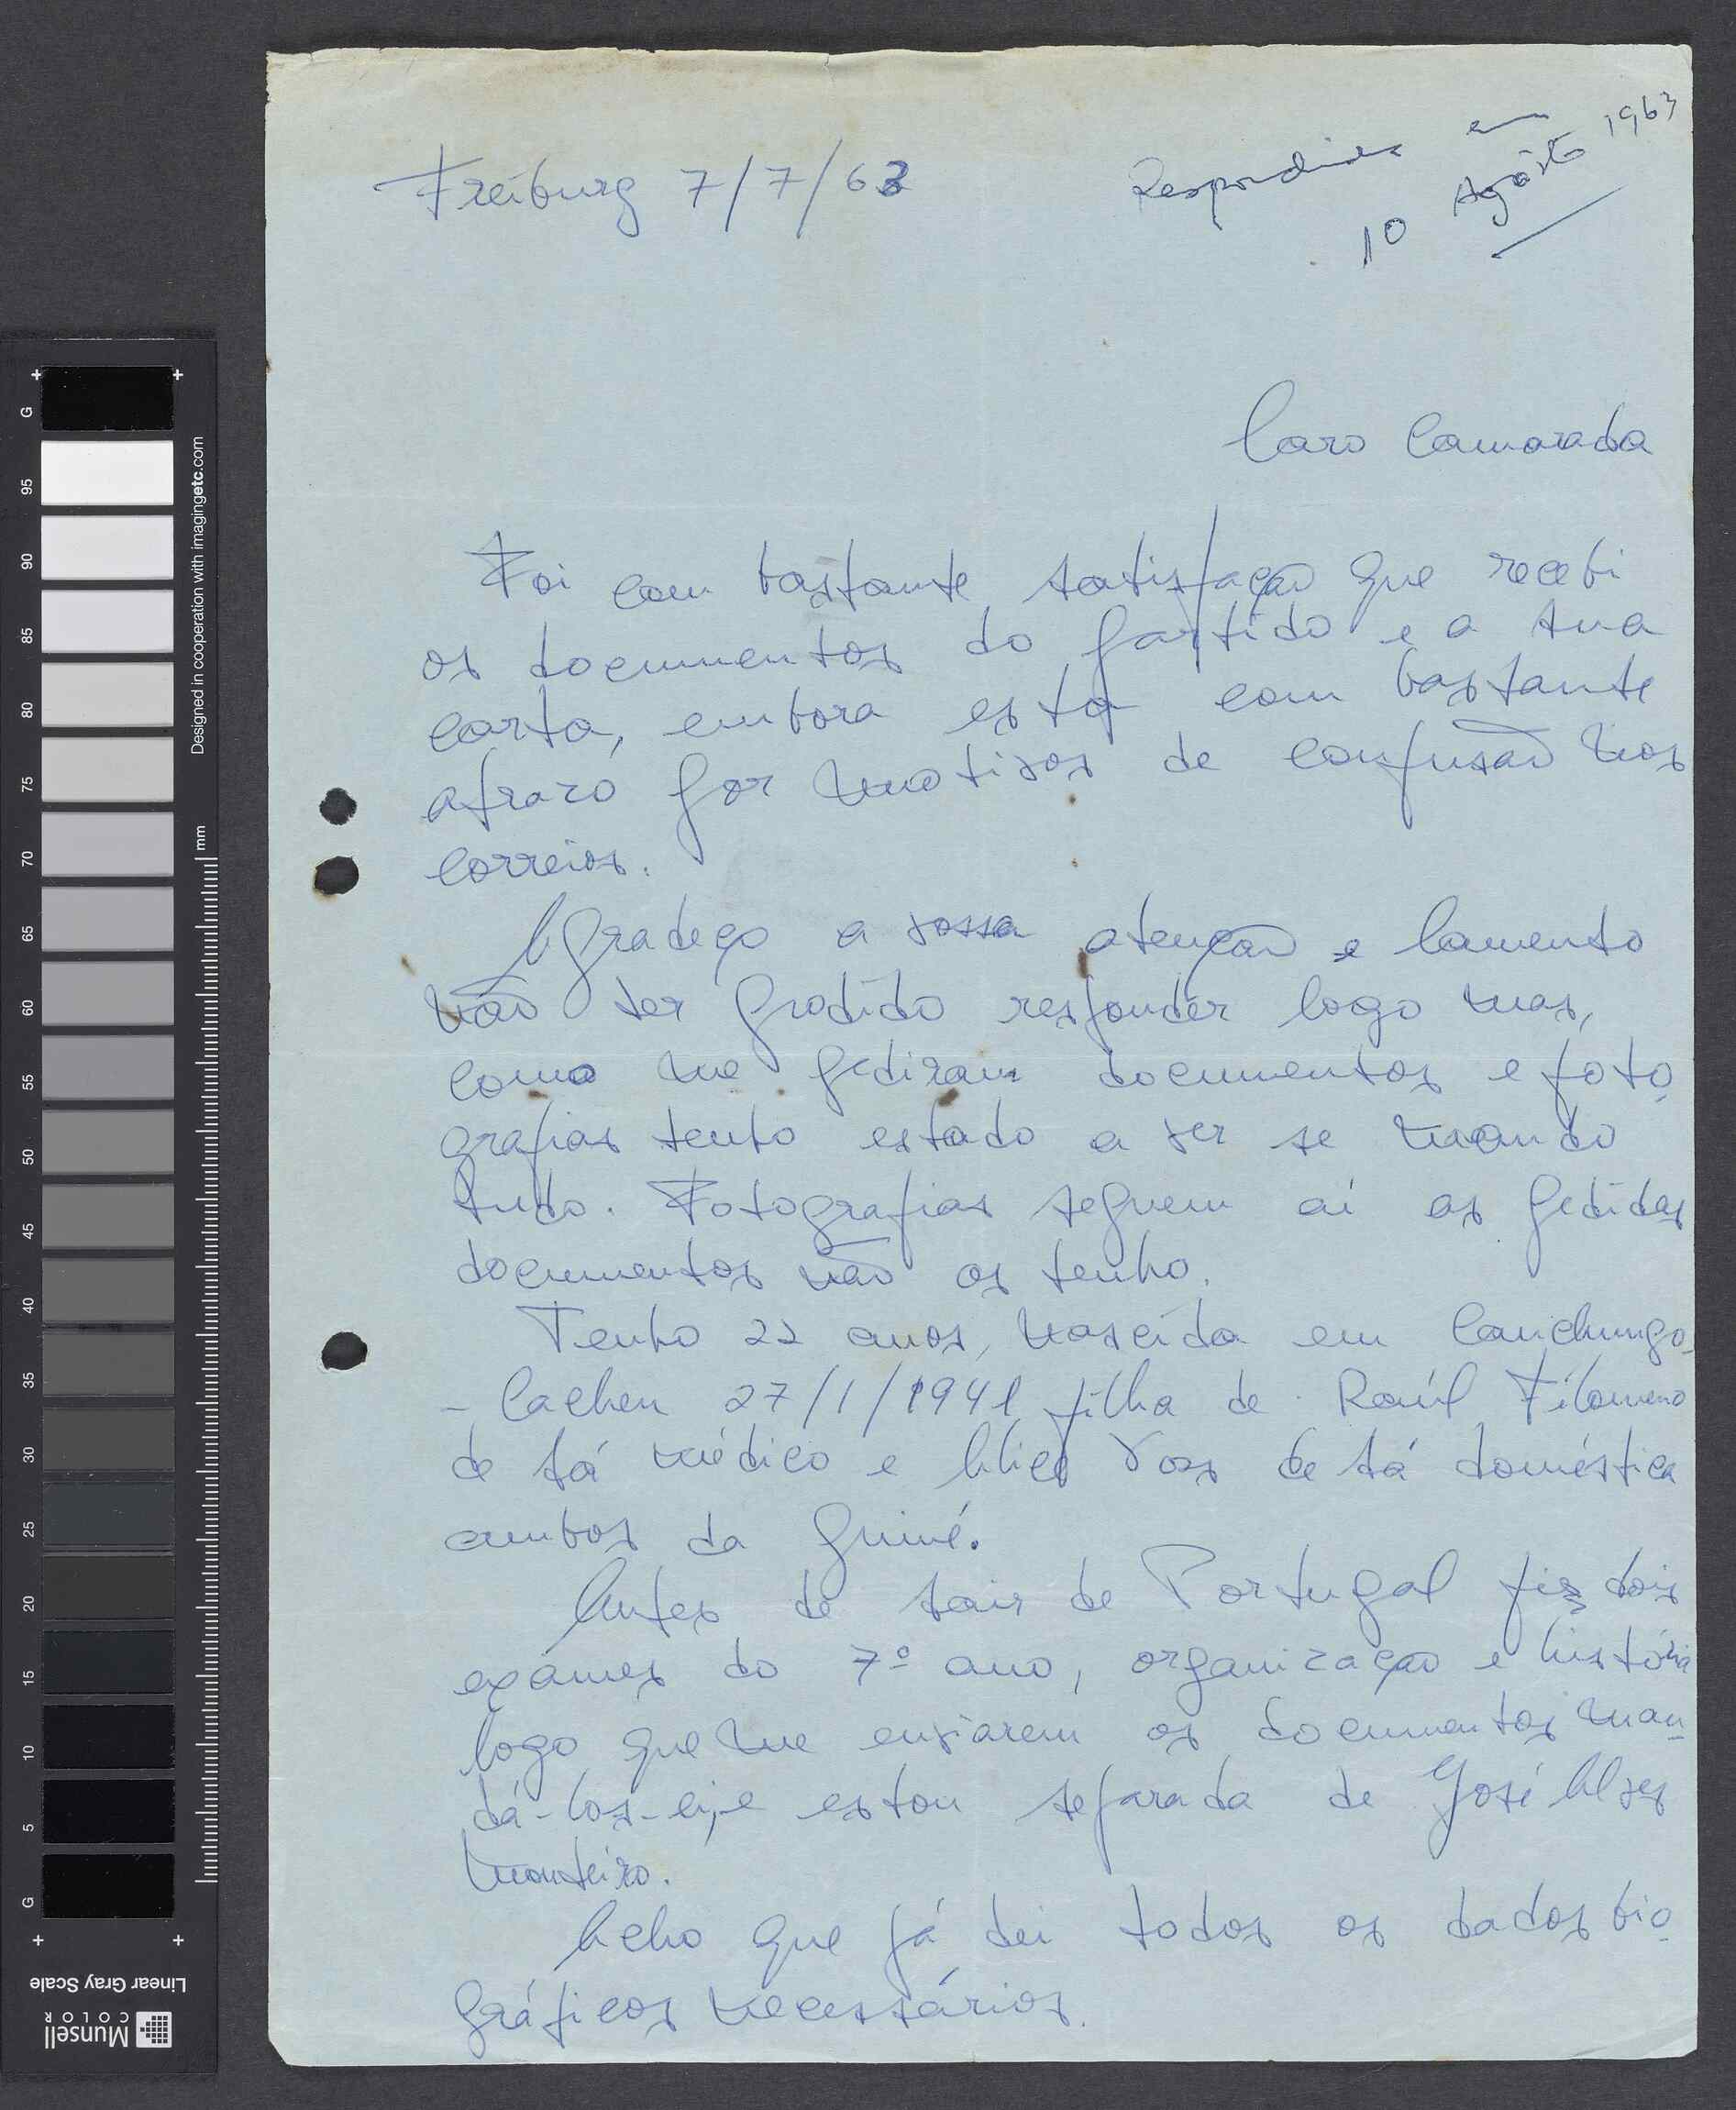 Freiburg 7/7/63
Respondida em
10 Agôsto 1963
Caro Camarada
Foi com bastante satisfação que recebi
os documentos do partido e a sua
carta, embora esta com bastante
atrazo por motivos de confusão nos
correios.
Agradeço a vossa atenção e lamento
não ter podido responder logo mas,
como me pediram documentos e foto
grafias tenho estado a ver se mando
tudo. Fotografias seguem aí as pedidas
documentos não os tenho.
Tenho 22 anos, nascida em Canchungo
- Cacheu 27/1/1941 filha de Raúl Filomeno
de Sá médico e Alice Vaz de Sá doméstica
ambos da Guiné.
Antes de sair de Portugal fiz dois
exâmes do 7º ano, organização e história
logo que me enviarem os documentos man
dá-los-ei, e estou separada de José Alves
Monteiro.
Acho que já dei todos os dados bio
gráficos necessários.
G
95
90
85
80
75
70
65
60
55
50
45
40
35
30
25
20
15
10
5
G
mm
Designed in cooperation with imagingetc.com
Linear Gray Scale
Munsell
COLOR